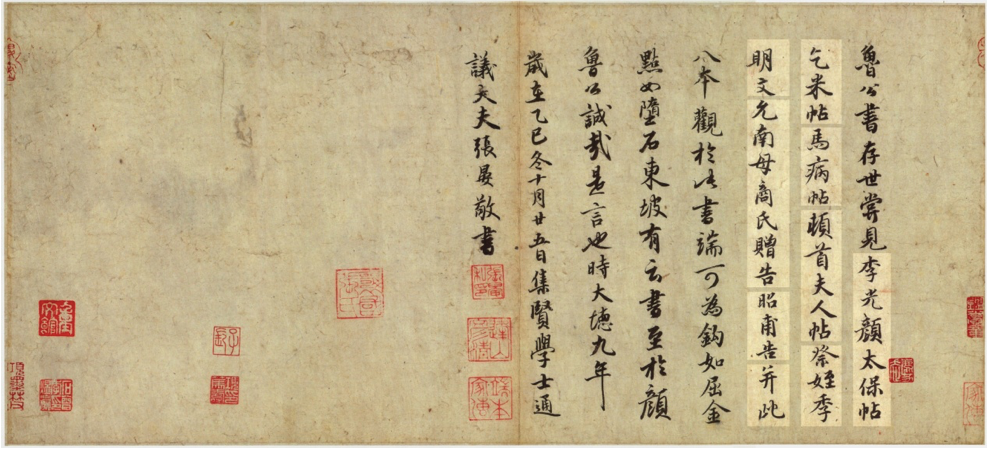 魯公書存世嘗見李光顏太保帖
乞米帖馬病帖頓首夫人帖祭姪季
明文允南母商氏贈告昭甫告并此
八本觀於此書端可為鈎如屈金
點如墮石東坡有云書至於顏
魯公誠哉是言也時大德九年
歲在乙巳冬十月廿五日集賢學士通
議大夫張晏敬書